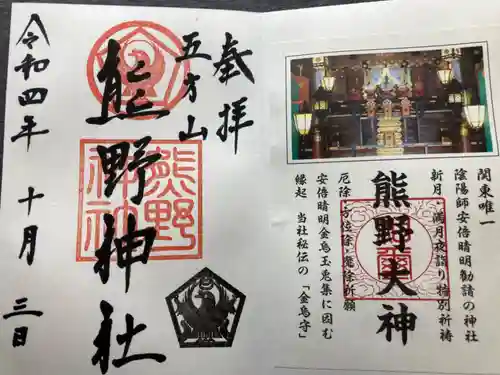 関東唯一
陰陽師安倍晴明勧請の神社
新月・満月夜詣り特別祈祷
熊野大神
厄除・方位除・除祈願
安倍晴明金烏玉兎集に因む
縁起 当社秘伝の「金烏守」
奉拝
五方山
熊野神社
熊野
神社
令和四年 十月 三日